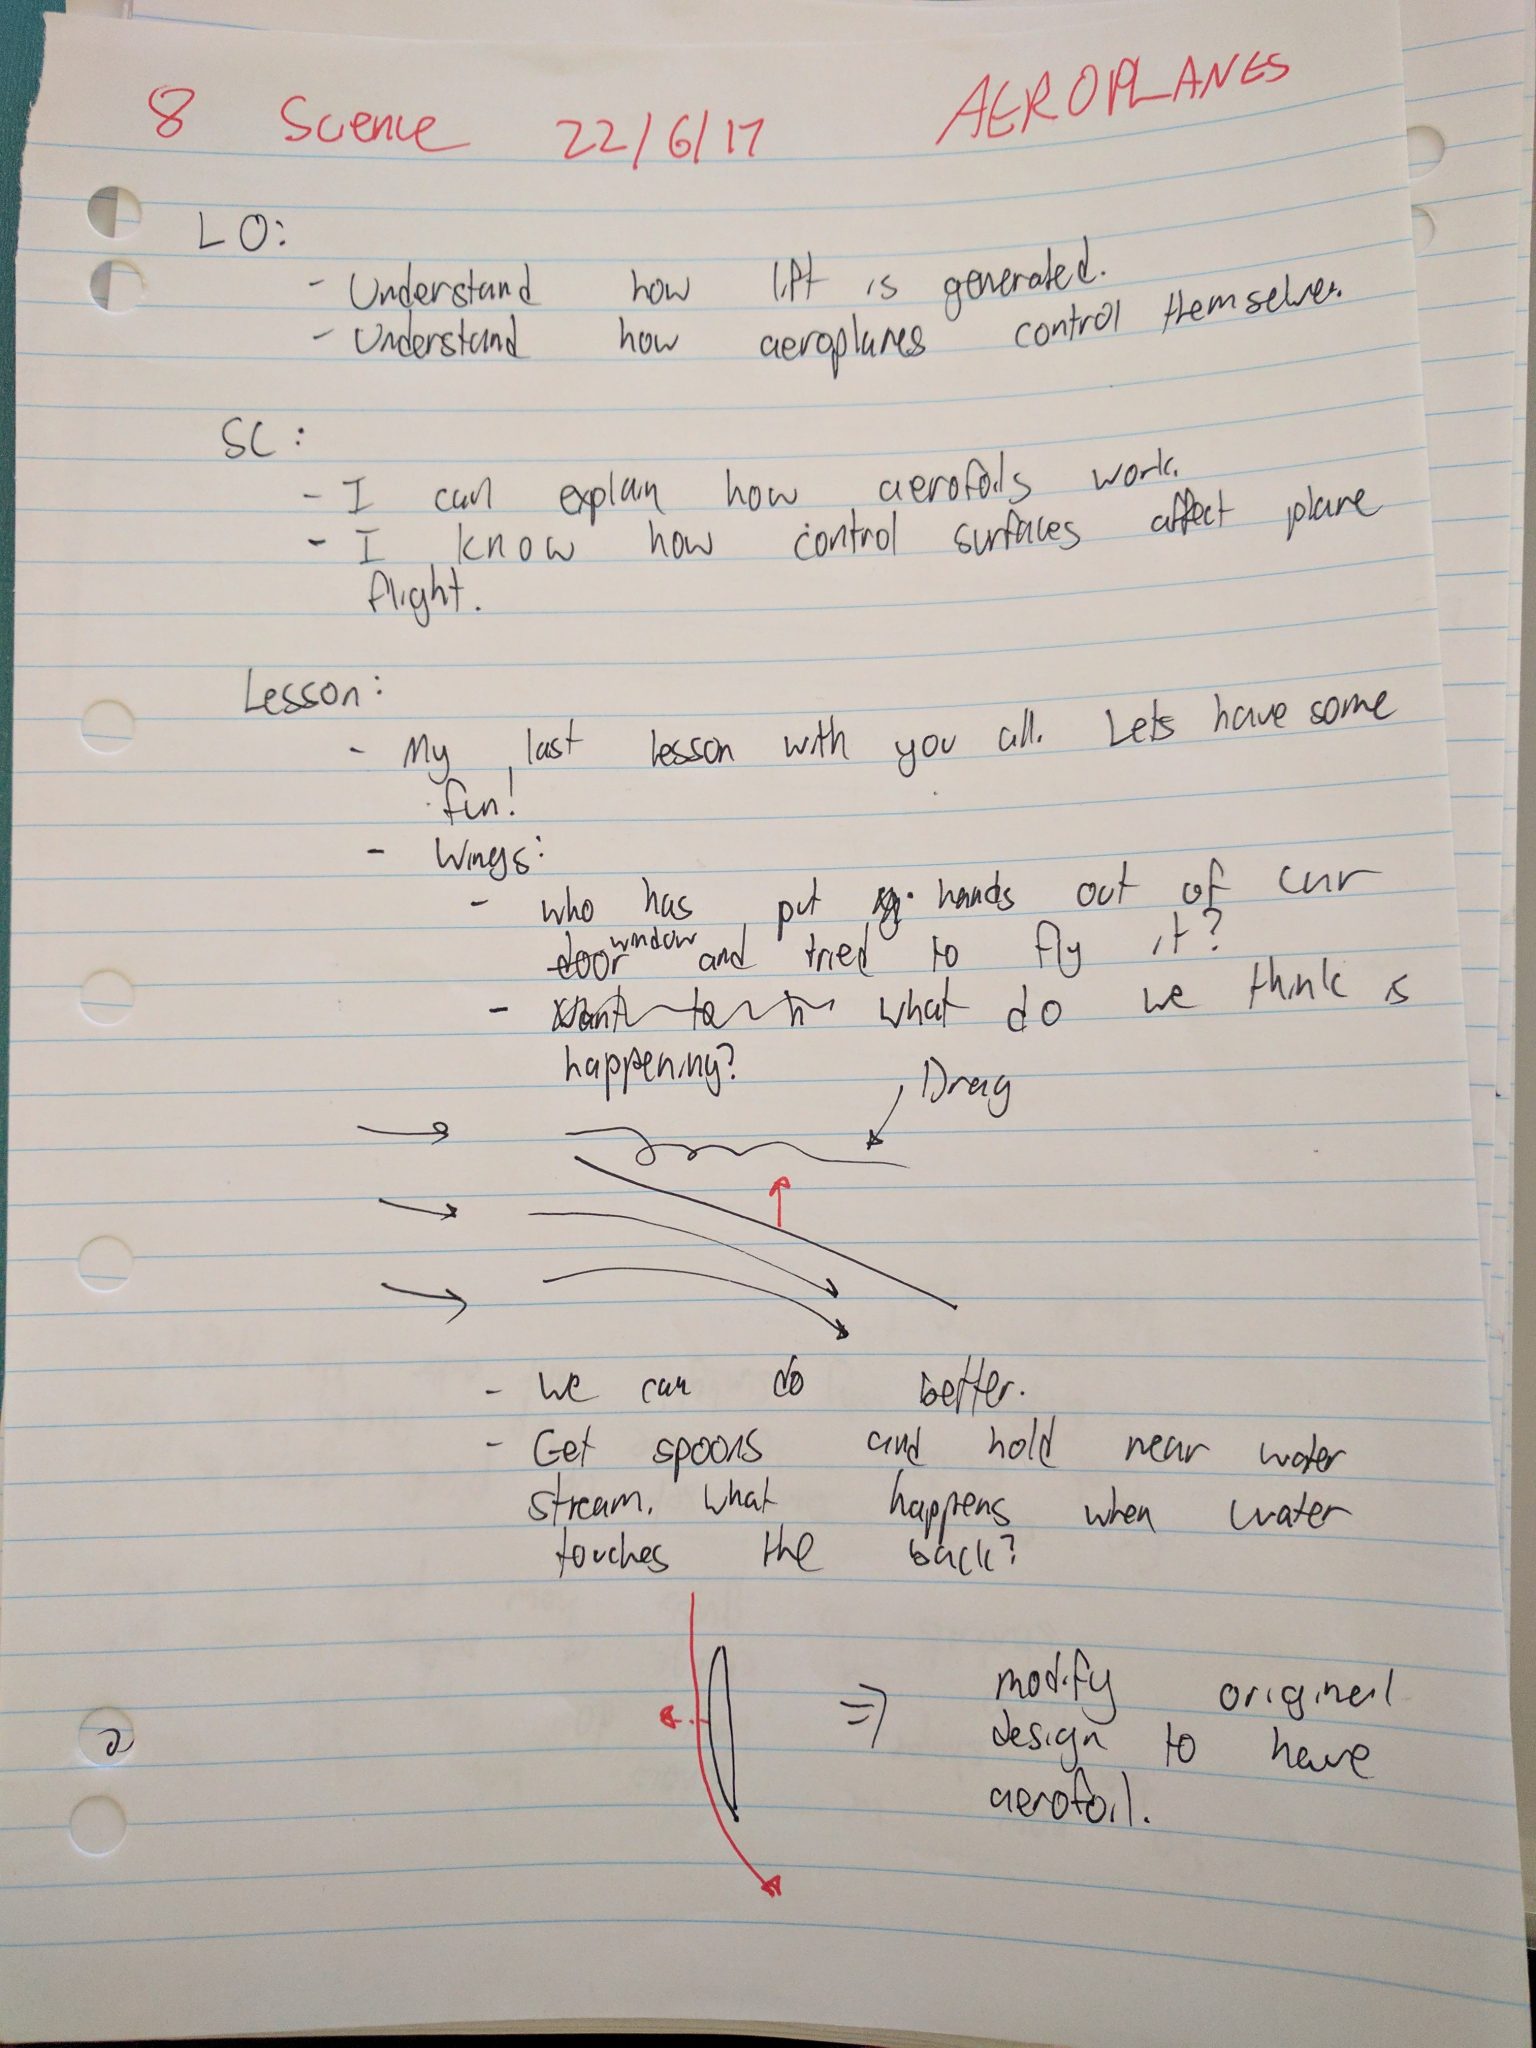 8 Science 22/6/17 AEROPLANES
LO:
- Understand how lift is generated.
- Understand how aeroplanes control themselves.
SC:
- I can explain how aerofoils work.
- I know how control surfaces affect plane
flight.
Lesson:
- My last lesson with you all. Lets have some
fun!
- Wings:
- who has put hands out of car
door window and tried to fly it?
- want to h what do we think is
happening?
Drag
- We can do better.
- Get spoons and hold near water
stream. what happens when water
touches the back?
=> modify original
design to have
aerofoil.